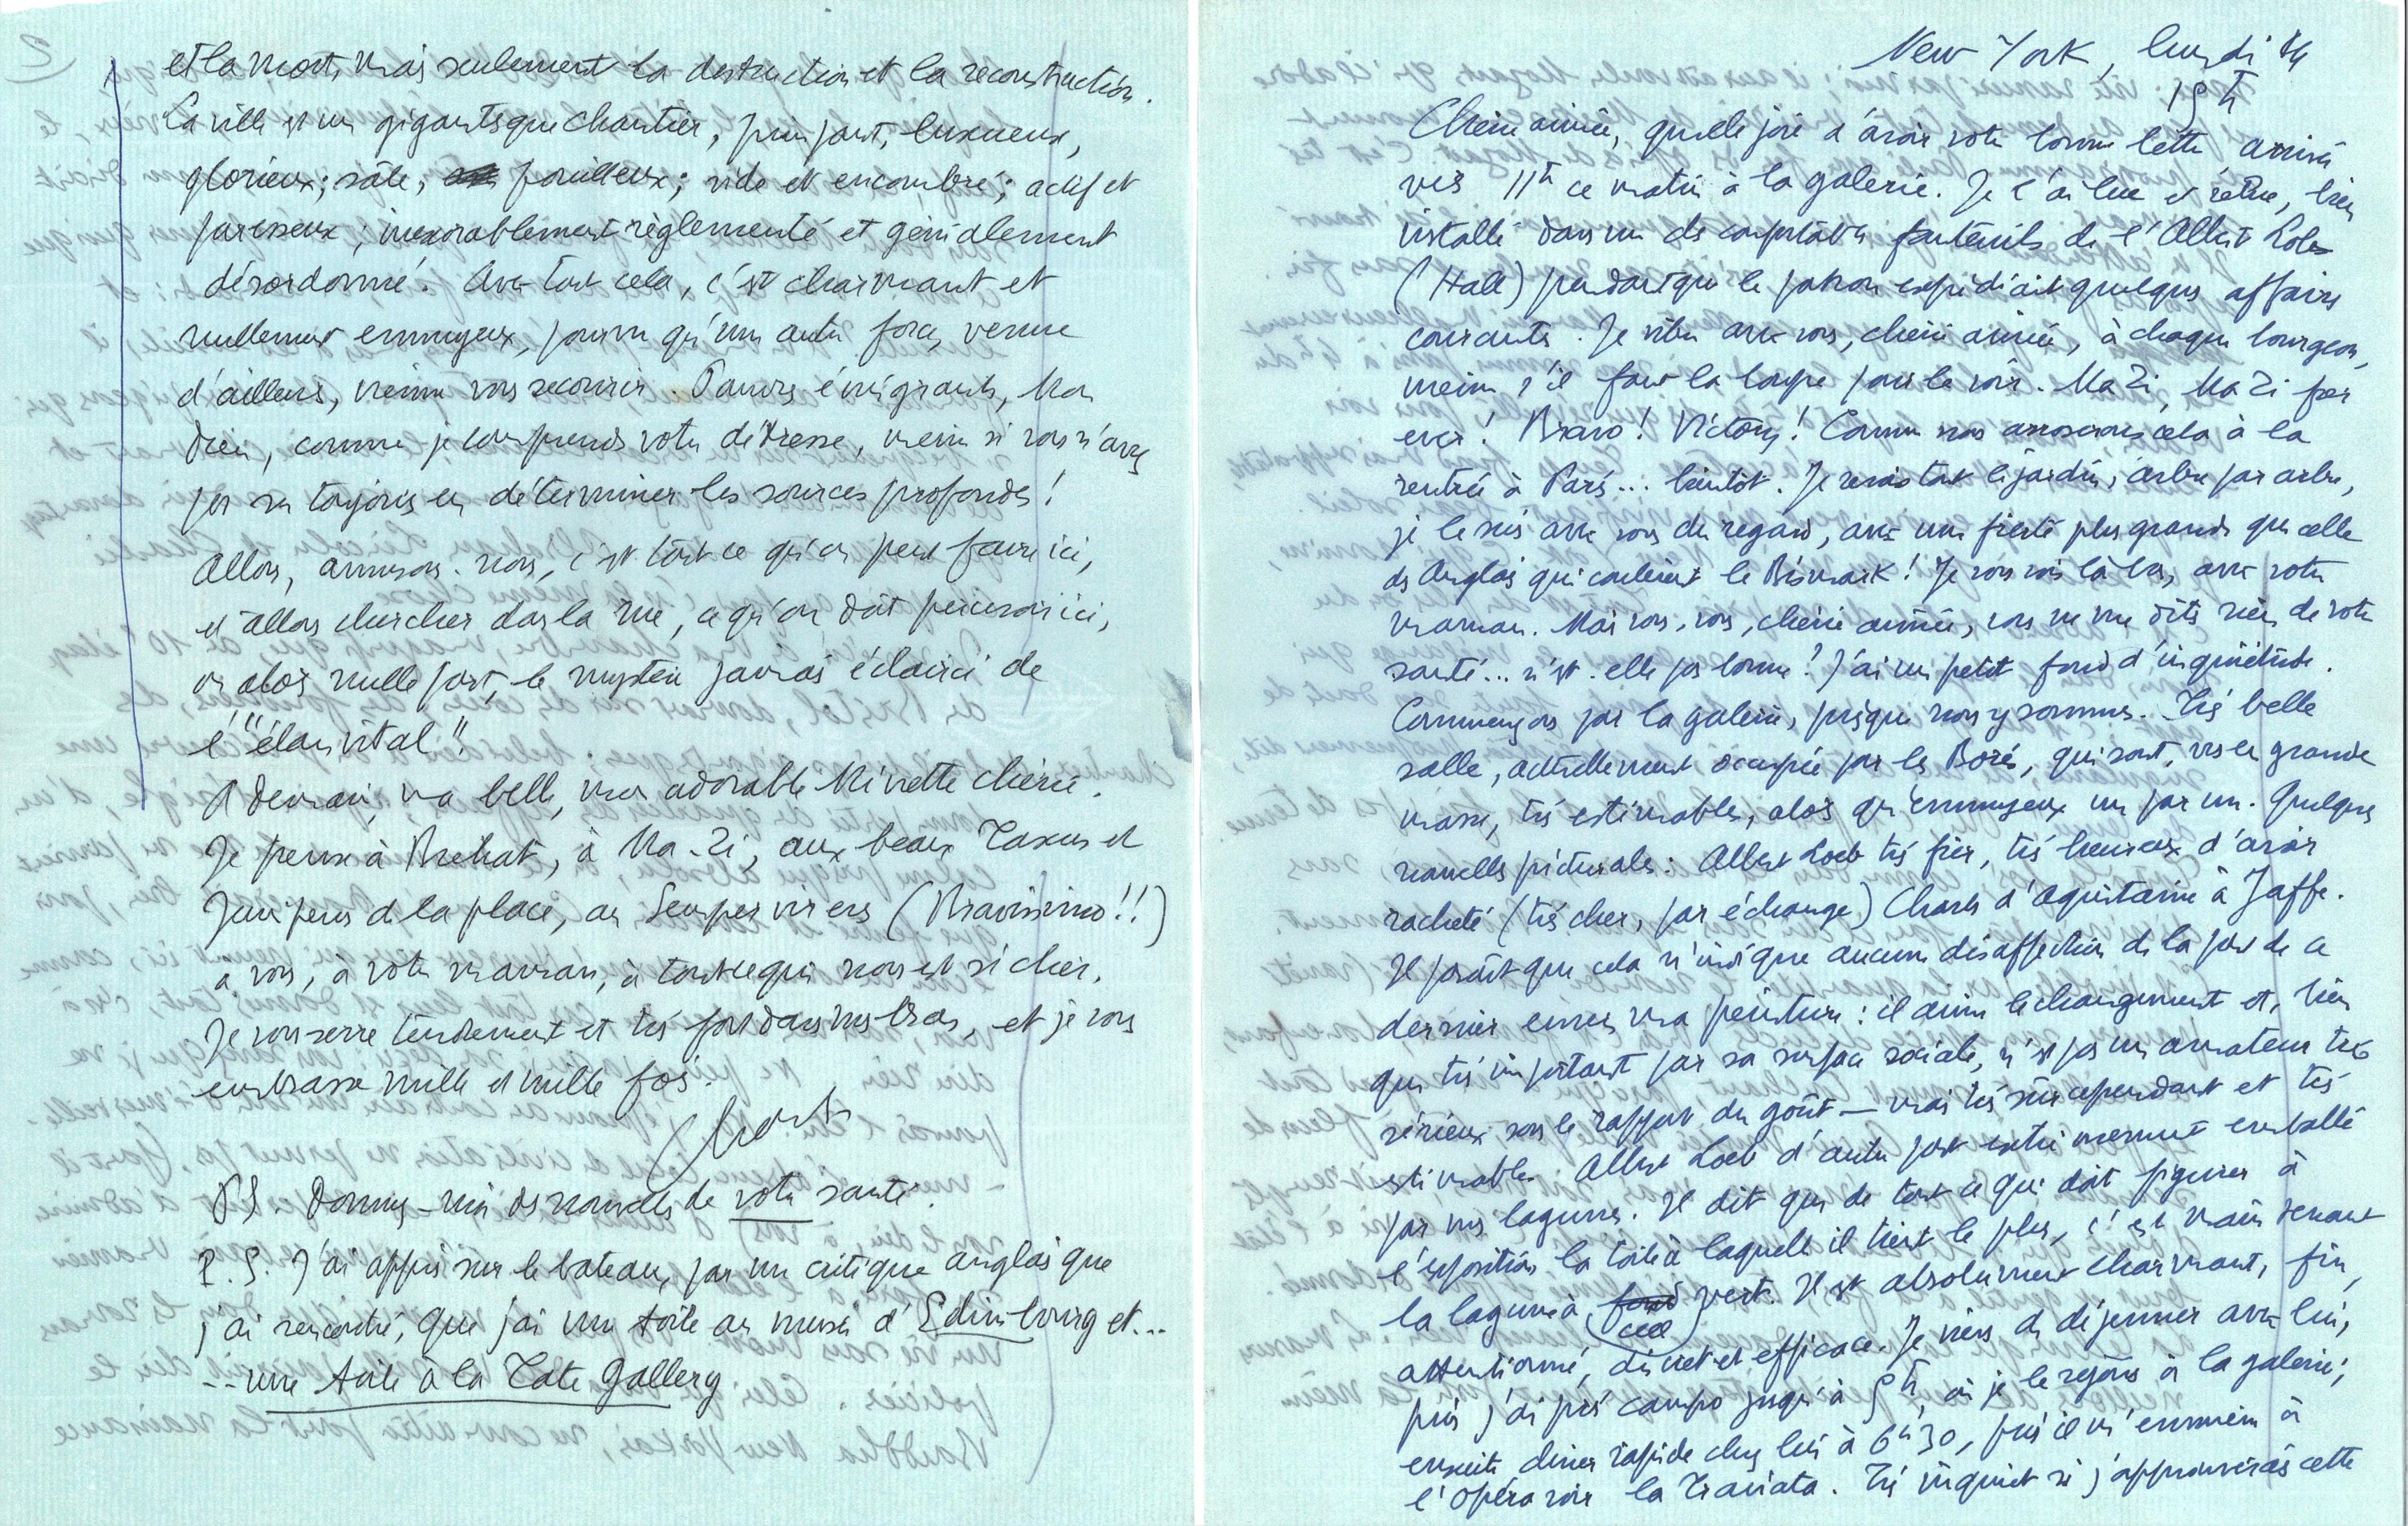 et la mort, mais seulement la destruction et la reconstruction.
La ville est un gigantesque chantier, puissant, luxueux,
glorieux; sale, pouilleux; vide et encombré; actif et
paresseux; inexorablement règlementé et génialement
désordonné. Avec tout cela, c'est charmant et
nullement ennuyeux, pourvu qu'une autre force, venue
d'ailleurs, vienne vous secourir. Pauvres émigrants, Mon
Dieu, comme je comprends votre détresse, même si vous n'avez
pas su toujours en déterminer les sources profondes!
Allons, amusons-nous, c'est tout ce qu'on peut faire ici,
et allons chercher dans la rue, ce qu'on doit percevoir ici,
ou alors nulle part, le mystère jamais éclairci de
l'"élan vital".
A demain, ma belle, mon adorable Minette chérie.
Je pense à Brehat, à Ma-Zi, aux beaux Taxus et
Juniperus de la place, au Sempervirens (Bravissimo!!)
à vous, à votre maman, à tout ce qui nous est si cher.
Je vous serre tendrement et très fort dans mes bras, et je vous
embrasse mille et mille fois.
PS. Donnez-moi des nouvelles de votre santé.
P.S. J'ai appris sur le bateau, par un critique anglais que
j'ai rencontré, que j'ai une toile au musée d'Edimbourg et...
-- une toile à la Tate Gallery
2
New York, lundi 14
15h
Chérie aimée, quelle joie d'avoir votre bonne lettre arrivée
vers 11h ce matin à la galerie. Je l'ai lue et relue, bien
installé dans un des confortables fauteuils de l'Albert Loeb
(Hall) pendant que le patron expédiait quelques affaires
courantes. Je vibre avec vous, chérie aimée, à chaque bourgeon,
même s'il faut la loupe pour le voir. Ma Zi, Ma Zi for
ever! Bravo! Victory! Comme nous arroserons cela à la
rentrée à Paris... bientôt. Je revois tout le jardin, arbre par arbre,
je le suis avec vous du regard, avec une fierté plus grande que celle
des Anglais qui coulèrent le Bismark! Je vous vois là bas, avec votre
maman. Mais vous, vous, chérie aimée, vous ne me dites rien de votre
santé... n'est-elle pas bonne? J'ai un petit fond d'inquiétude.
Commençons par la galerie, puisque nous y sommes. Très belle
salle, actuellement occupée par les Borès, qui sont, vus en grande
masse, très estimables, alors qu'ennuyeux un par un. Quelques
nouvelles picturales: Albert Loeb très fier, très heureux d'avoir
racheté (très cher, par échange) Charles d'Aquitaine à Jaffe.
Il paraît que cela n'indique aucune désaffection de la part de ce
dernier envers ma peinture: il aime le changement et, bien
que très important par sa surface sociale, n'est pas un amateur très
sérieux sous le rapport du goût — mais très sûr cependant et très
estimable. Albert Loeb d'autre part extrêmement emballé
par mes lagunes. Il dit que de tout ce qui doit figurer à
l'exposition la toile à laquelle il tient le plus, c'est maintenant
la lagune à ciel vert. Il est absolument charmant, fin,
attentionné, discret et efficace. Je viens de déjeuner avec lui,
puis j'ai pris campo jusqu'à 5h, où je le rejoins à la galerie;
ensuite diner rapide chez lui à 6h30, puis il m'emmène à
l'opéra voir la Traviata. Très inquiet si j'approuverais cette